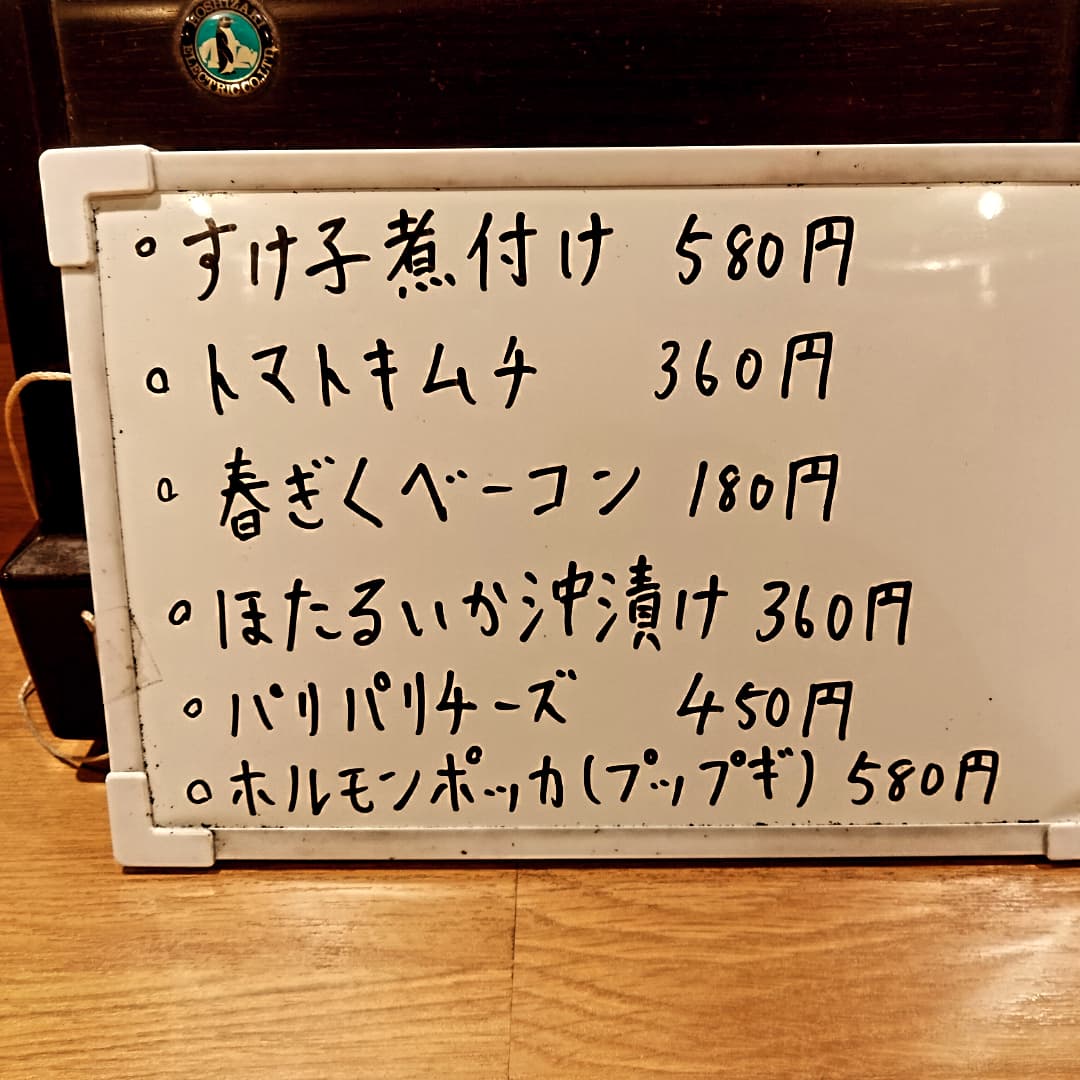 HOSHIZAKI ELECTRIC CO., LTD.
。すけ子煮付け 580円
。トマトキムチ 360円
。春ぎくベーコン 180円
。ほたるいか沖漬け 360円
。パリパリチーズ 450円
。ホルモンポッカ(プップギ) 580円